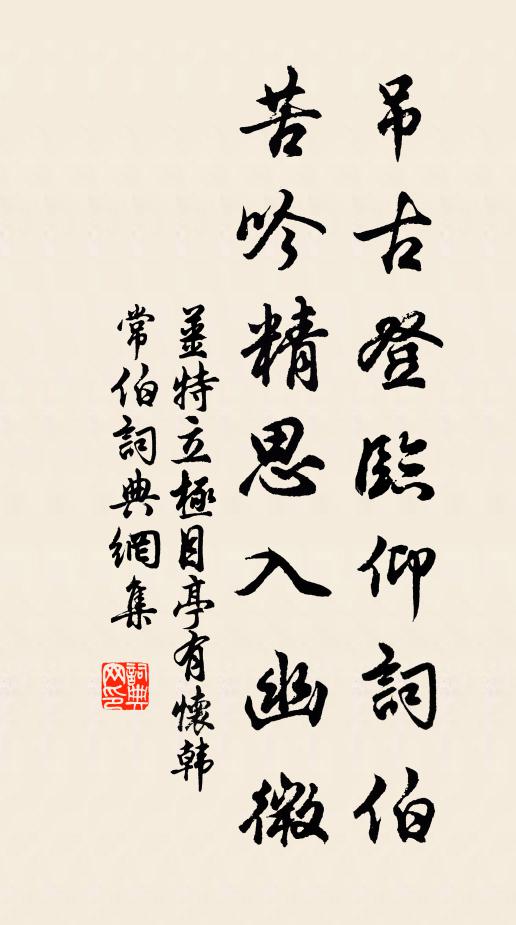 吊古登臨仰詞伯
苦吟精思入幽微
姜特立極目亭有懷韩
常伯詞典網集
詞典
网印